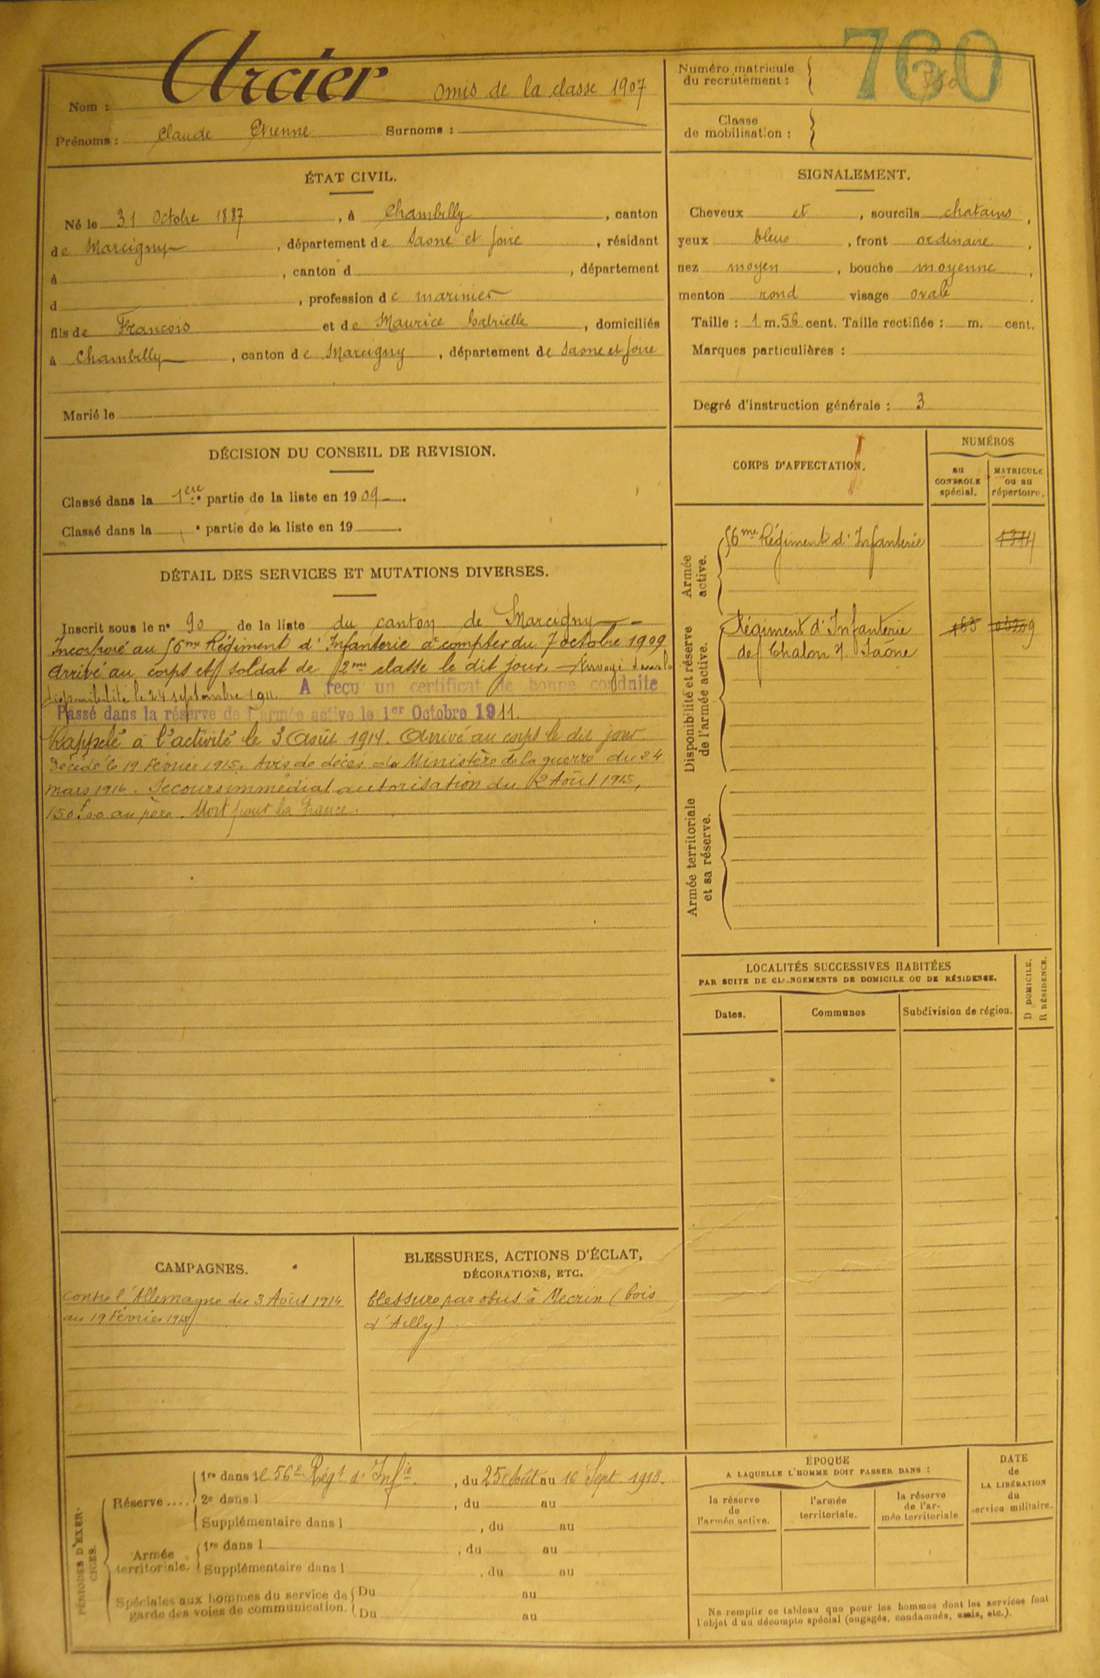 Arcier
760
Nom : omis de la classe 1907
Prénoms : Claude Etienne Surnoms :
Numéro matricule
du recrutement : 760
Classe
de mobilisation :
ÉTAT CIVIL.
Né le 31 Octobre 1887, à Chambilly, canton
de Marcigny, département de Saône et Loire, résidant
à , canton d , département
d , profession de marinier
fils de Francois et de Maurice Gabrielle, domiciliés
à Chambilly, canton de Marcigny, département de Saone et Loire
Marié le
SIGNALEMENT.
Cheveux et , sourcils chatains,
yeux bleus , front ordinaire,
nez moyen , bouche moyenne,
menton rond visage ovale
Taille : 1 m. 56 cent. Taille rectifiée : m. cent.
Marques particulières :
Degré d'instruction générale : 3
DÉCISION DU CONSEIL DE REVISION.
Classé dans la 1ere partie de la liste en 1909.
Classé dans la partie de la liste en 19 .
DÉTAIL DES SERVICES ET MUTATIONS DIVERSES.
Inscrit sous le n° 90 de la liste du canton de Marcigny
Incorporé au 56me Régiment d'Infanterie à compter du 7 octobre 1909
Arrivé au corps et soldat de 2me classe le dit jour. Envoyé dans la
disponibilité le 24 septembre 1911. A reçu un certificat de bonne conduite
Passé dans la réserve de l'armée active le 1er Octobre 1911.
Rappelé à l'activité le 3 Août 1914. Arrivé au corps le dit jour
Décédé le 19 Février 1915. Avis de décès du Ministère de la guerre du 24
mars 1916. Secours immédiat autorisation du 12 Août 1915,
150f00 au père. Mort pour la France.
CORPS D'AFFECTATION.
NUMÉROS
au
CONTROLE
spécial.
MATRICULE
ou au
répertoire.
Armée
active.
56me Régiment d'Infanterie
Disponibilité et réserve
de l'armée active.
Régiment d'Infanterie
de Chalon s/ Saône
Armée territoriale
et sa réserve.
LOCALITÉS SUCCESSIVES HABITÉES
PAR SUITE DE CHANGEMENTS DE DOMICILE OU DE RÉSIDENCE.
Dates.
Communes
Subdivision de région.
D DOMICILE.
R RÉSIDENCE.
CAMPAGNES.
Contre l'Allemagne du 3 Août 1914
au 19 Février 1915
BLESSURES, ACTIONS D'ÉCLAT,
DÉCORATIONS, ETC.
blessure par obus à Mecrin (bois
d'Ailly)
PÉRIODES D'EXERCICES.
Réserve ....
1re dans le 56e Régt d'Infie, du 25 Août au 16 Sept. 1913.
2e dans l , du au
Supplémentaire dans l , du au
Armée
territoriale.
1re dans l , du au
Supplémentaire dans l , du au
Spéciales aux hommes du service de
garde des voies de communication.
Du au
Du au
ÉPOQUE
A LAQUELLE L'HOMME DOIT PASSER DANS :
la réserve
de
l'armée active.
l'armée
territoriale.
la réserve
de l'ar-
mée territoriale
DATE
de
LA LIBÉRATION
du
service militaire.
Ne remplir ce tableau que pour les hommes dont les services font
l'objet d'un décompte spécial (engagés, condamnés, omis, etc.).